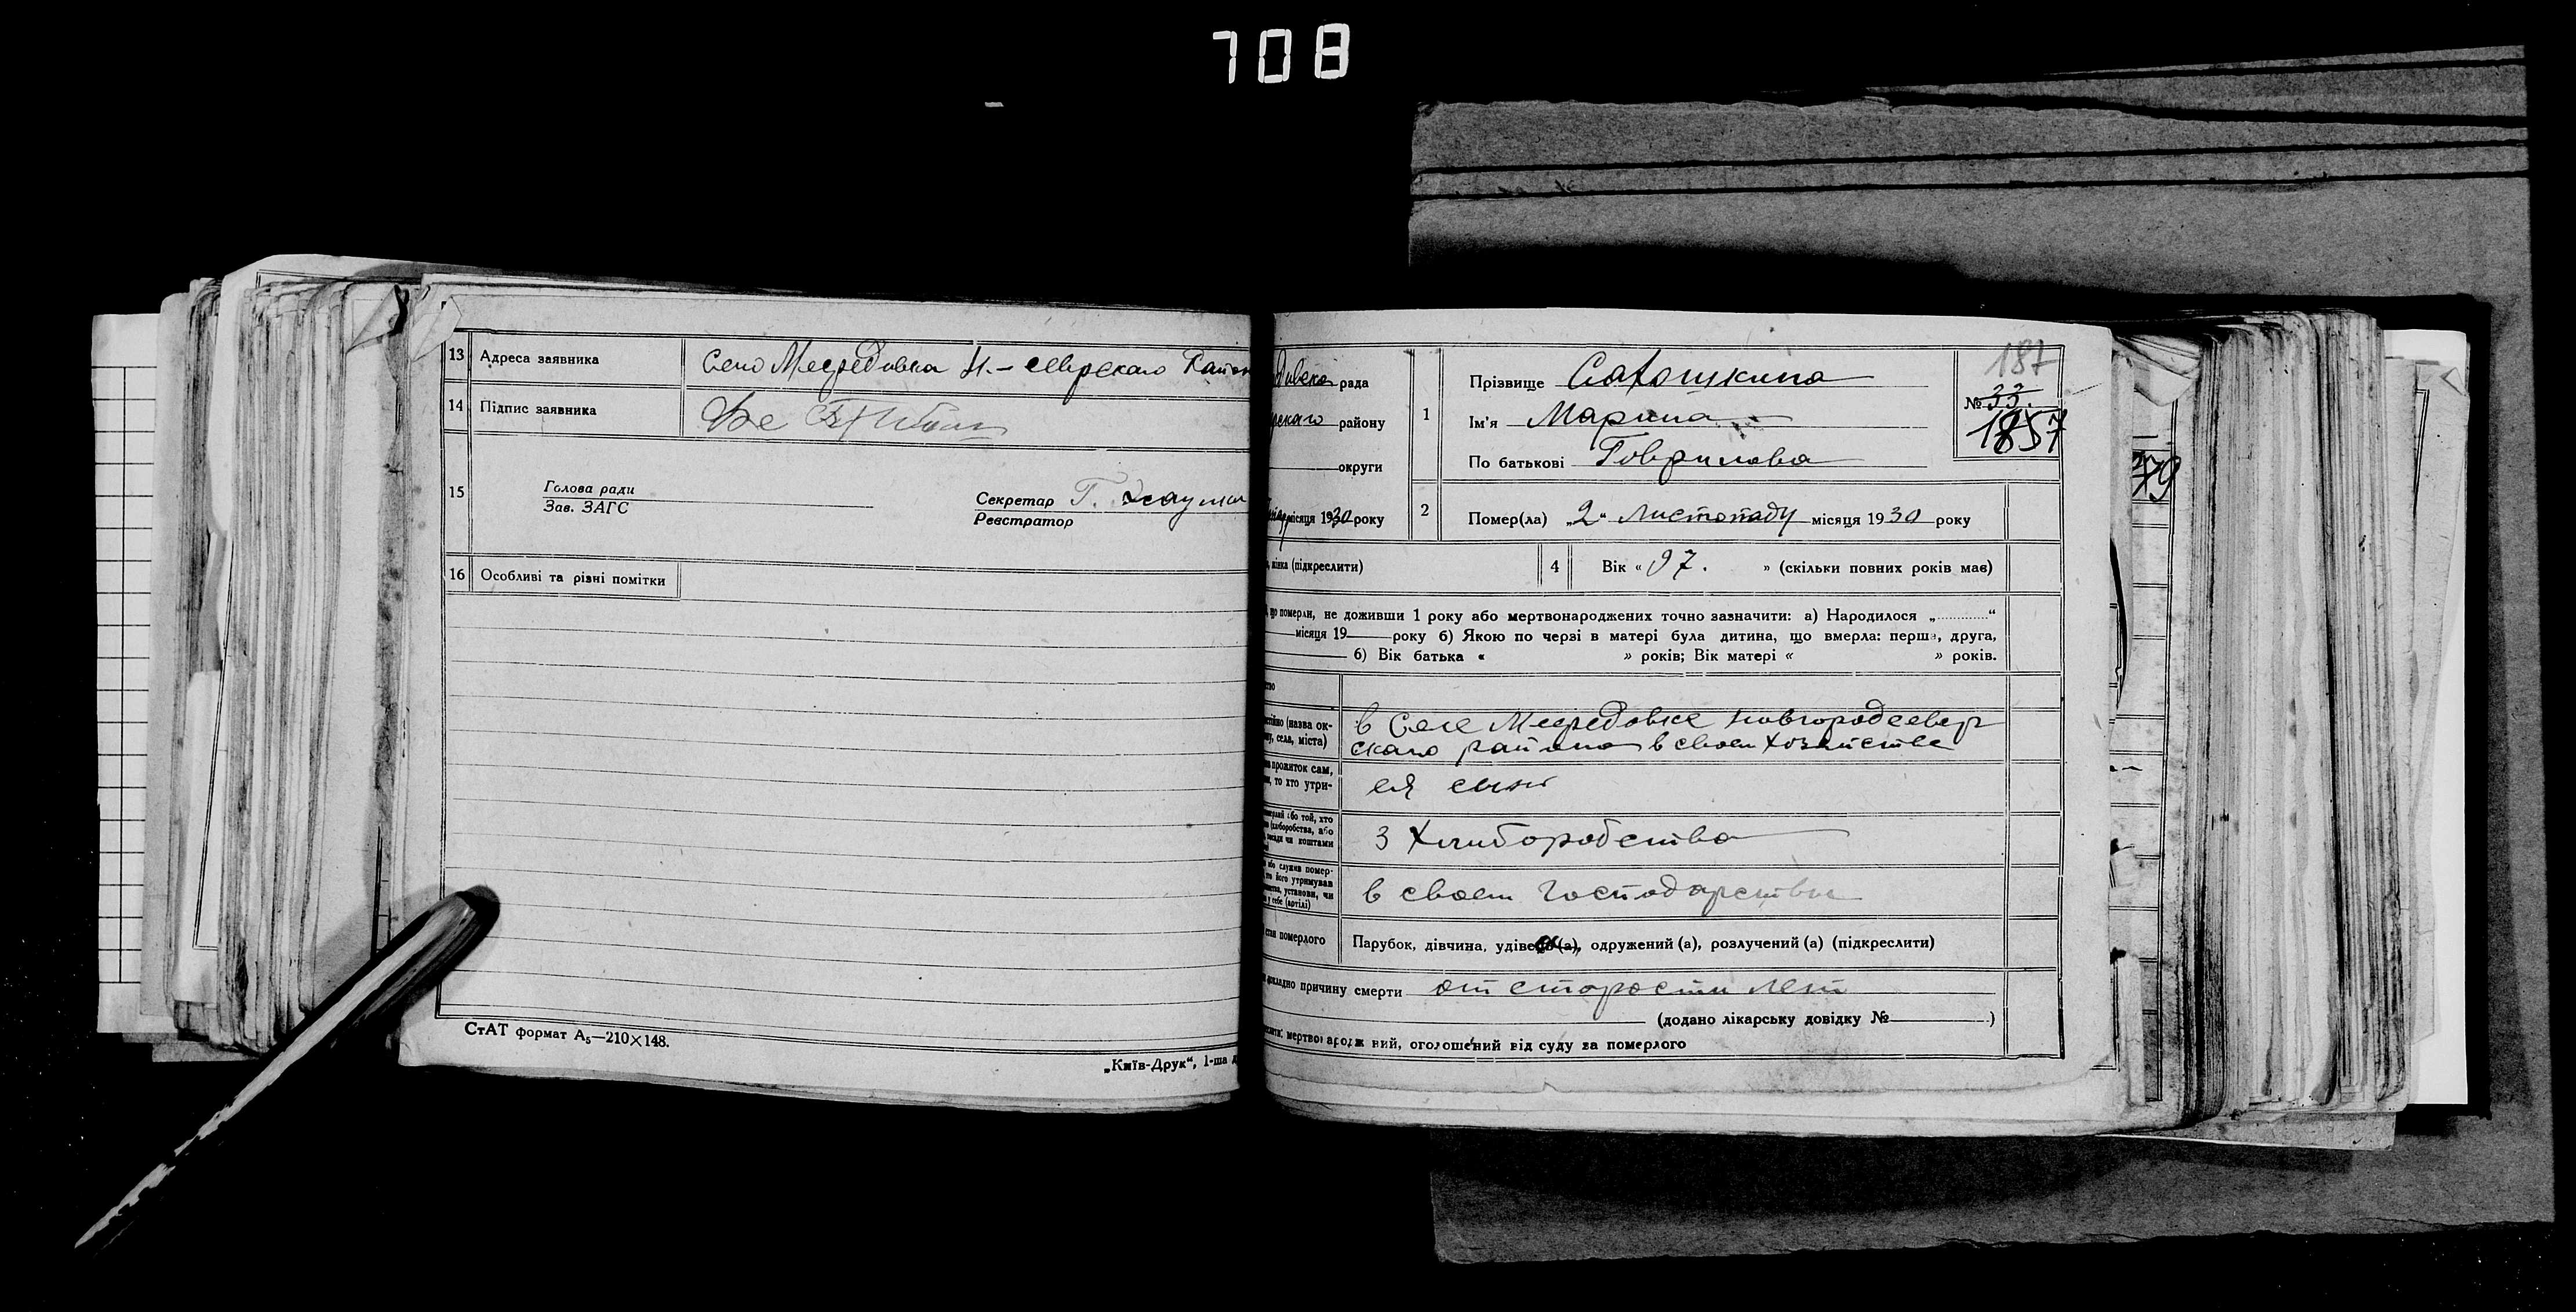 708
13 Адреса заявника Село Мефедовка Н.-северскаго Район
14 Підпис заявника
15 Голова ради
Зав. ЗАГС
Секретар Г. Науме
Реєстратор
16 Особливі та різні помітки
СтАТ формат А₅—210×148.
„Київ-Друк“, 1-ша д
рада
району
округи
місяця 1930 року
1 Прізвище Сахошкина
Ім'я Марина
По батькові Гаврилова
187
№ 33.
1857
79
2 Помер(ла) „2“ Листопаду місяця 1930 року
жінка (підкреслити)
4 Вік « 97. » (скільки повних років має)
що померли, не доживши 1 року або мертвонароджених точно зазначити: а) Народилося „ “
місяця 19 року б) Якою по черзі в матері була дитина, що вмерла: перша, друга,
б) Вік батька « » років; Вік матері « » років.
(назва ок-
села, міста)
в Селе Мефедовке Новгородсевер
скаго района в своем хозяйстве
прожиток сам,
то хто утри-
ея сын
або той, хто
чи коштами
З Хлиборобства
або служив помер-
його утримував
установи, чи
у себе (артілі)
в своем господарстви
стан померлого Парубок, дівчина, удівець (а), одружений (а), розлучений (а) (підкреслити)
докладно причину смерти от старости лет
(додано лікарську довідку № )
мертвонароджений, оголошений від суду за померлого